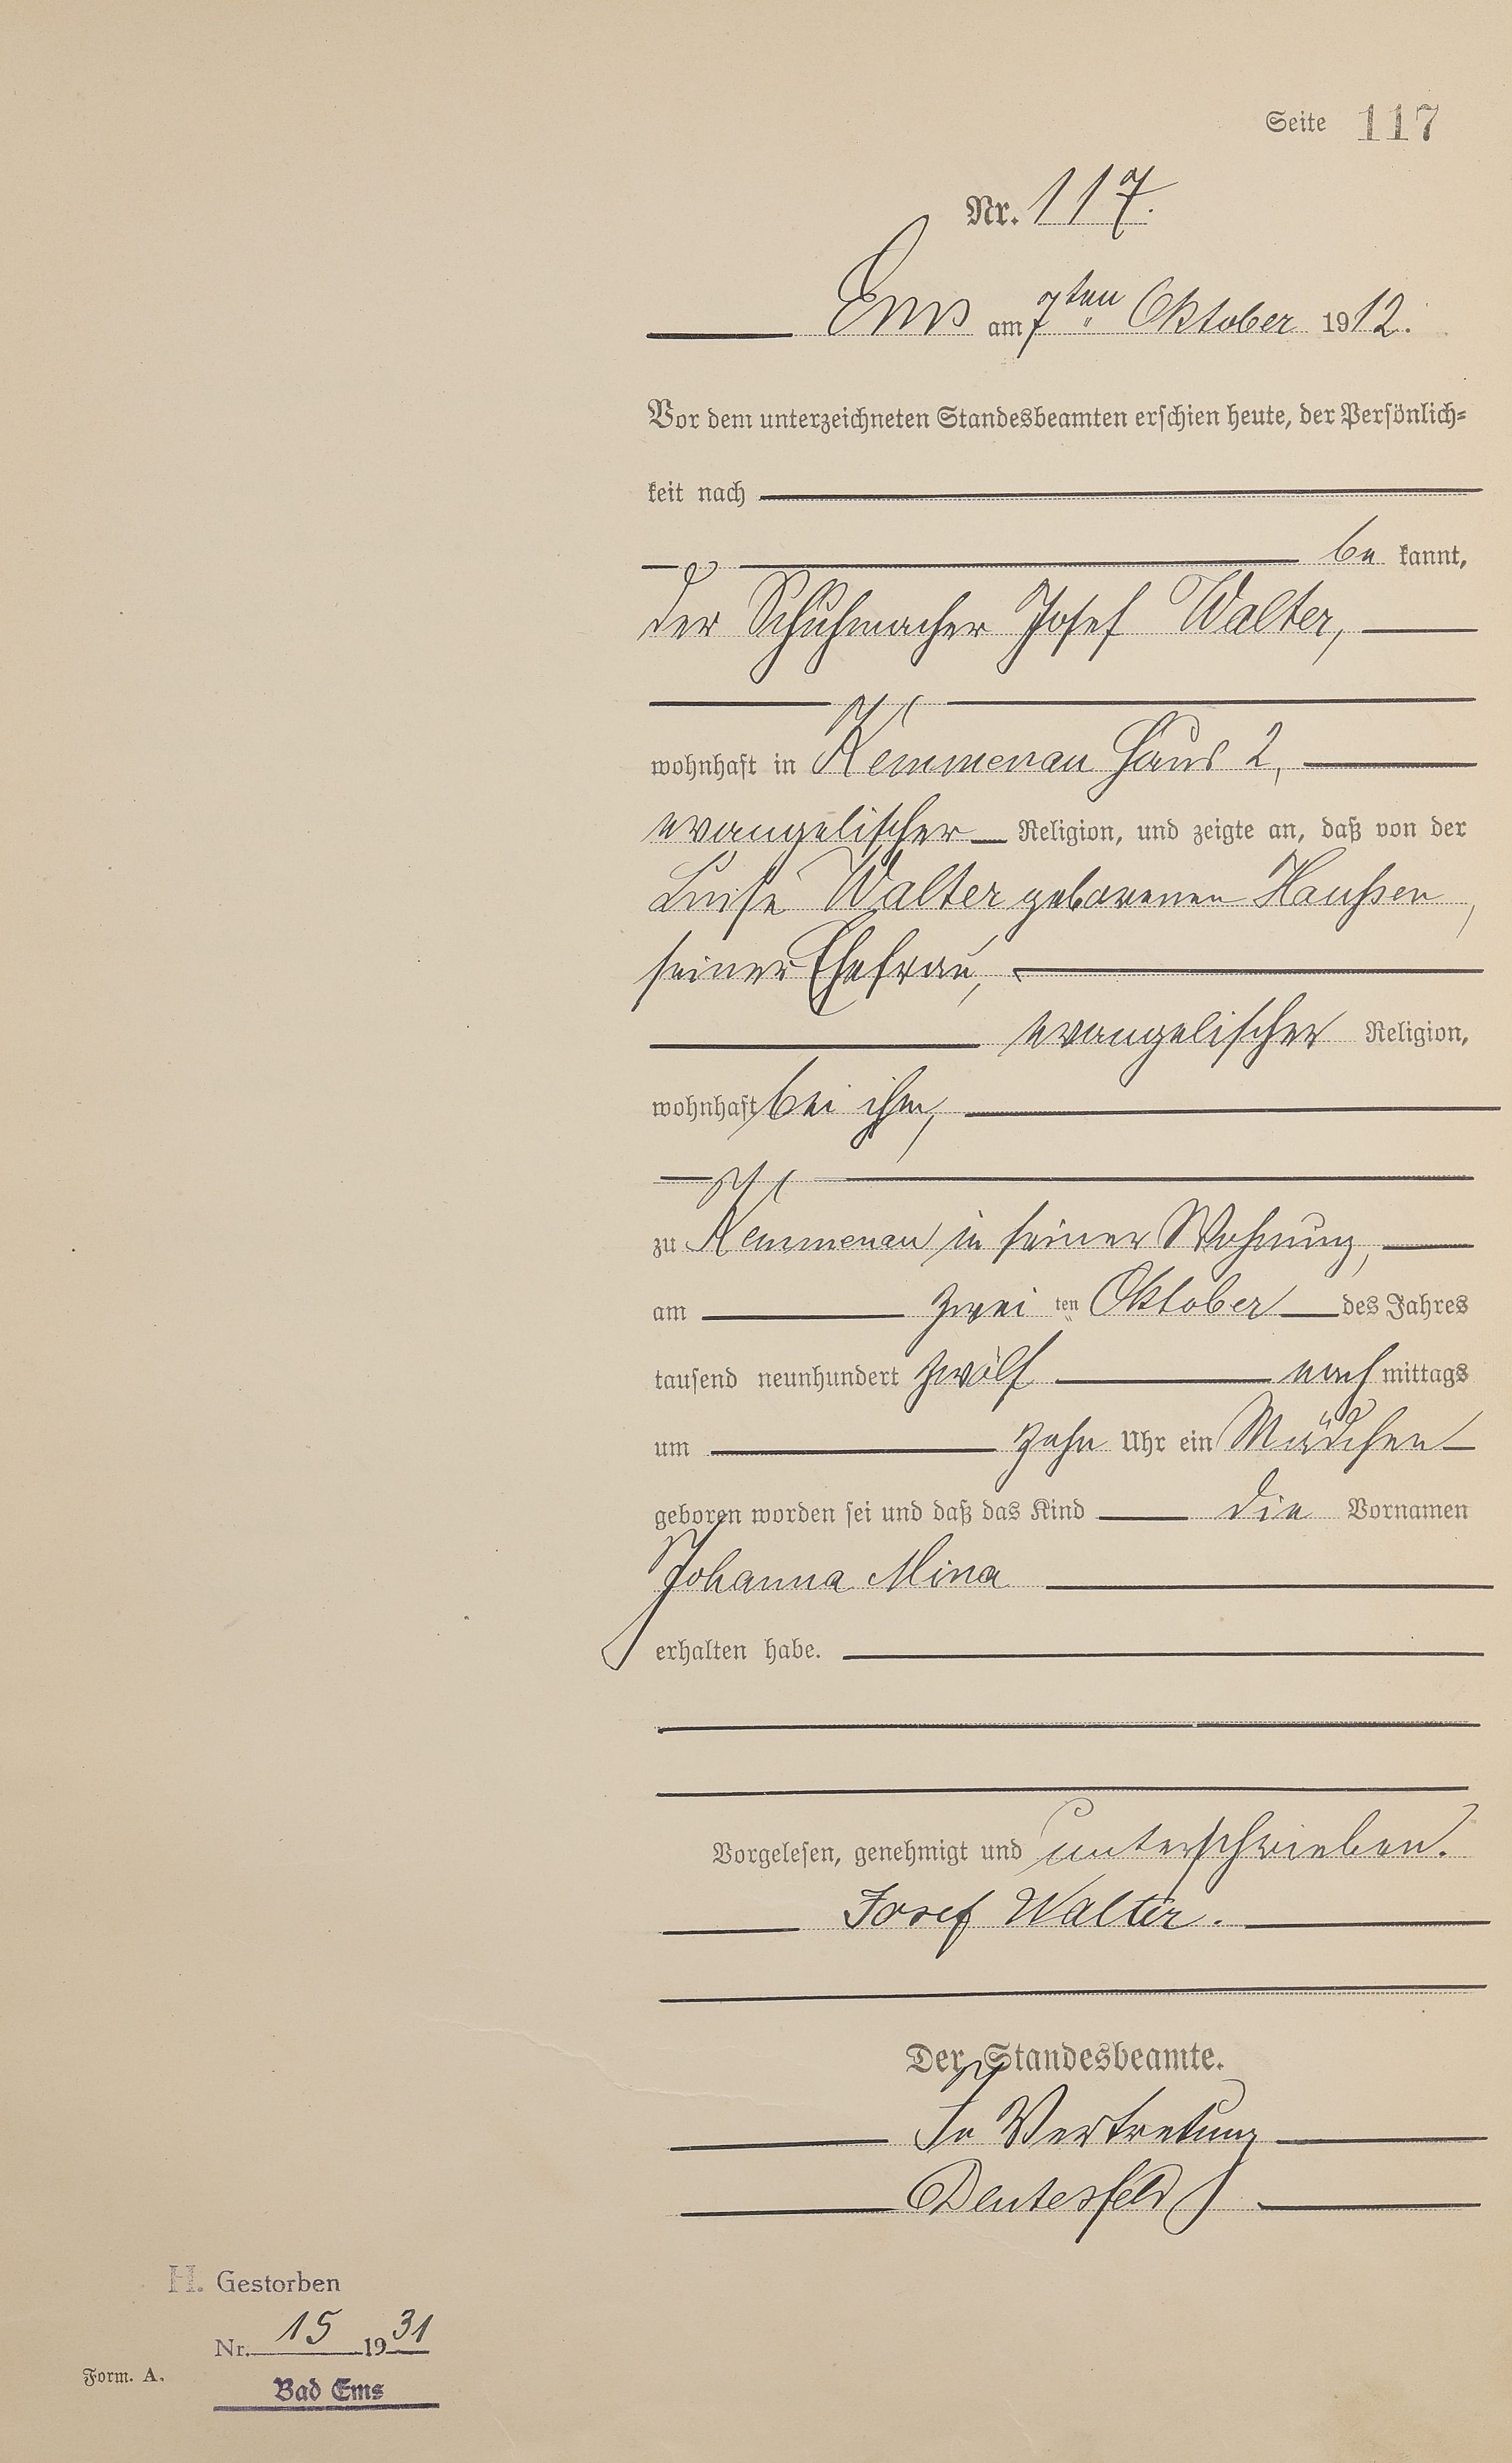 Seite 117
Nr. 117.
Ems am 7ten Oktober 1912.
Vor dem unterzeichneten Standesbeamten erschien heute, der Persönlich-
keit nach
be kannt,
der Schuhmacher Josef Walter,
wohnhaft in Kemmenau Haus 2,
evangelischer Religion, und zeigte an, daß von der
Luise Walter geborenen Haußen,
seiner Ehefrau,
evangelischer Religion,
wohnhaft bei ihm,
zu Kemmenau in seiner Wohnung,
am zwei ten Oktober des Jahres
tausend neunhundert zwölf nach mittags
um zehn Uhr ein Mädchen
geboren worden sei und daß das Kind die Vornamen
Johanna Mina
erhalten habe.
Vorgelesen, genehmigt und unterschrieben.
Josef Walter.
Der Standesbeamte.
In Vertretung
H. Gestorben
Nr. 15 1931
Form. A.
Bad Ems